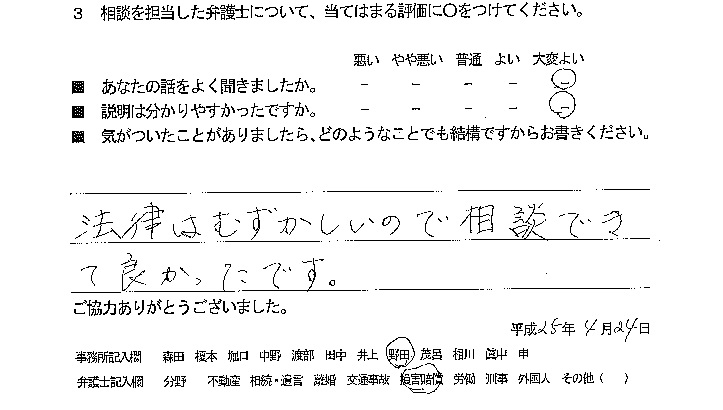 3 相談を担当した弁護士について、当てはまる評価に○をつけてください。
悪い やや悪い 普通 よい 大変よい
■ あなたの話をよく聞きましたか。 － － － － －
■ 説明は分かりやすかったですか。 － － － － －
■ 気がついたことがありましたら、どのようなことでも結構ですからお書きください。
法律はむずかしいので相談でき
て良かったです。
ご協力ありがとうございました。
平成25年 4月24日
事務所記入欄 森田 榎本 堀口 中野 渡部 田中 井上 野田 茂呂 相川 眞中 申
弁護士記入欄 分野 不動産 相続・遺言 離婚 交通事故 損害賠償 労働 刑事 外国人 その他（ ）